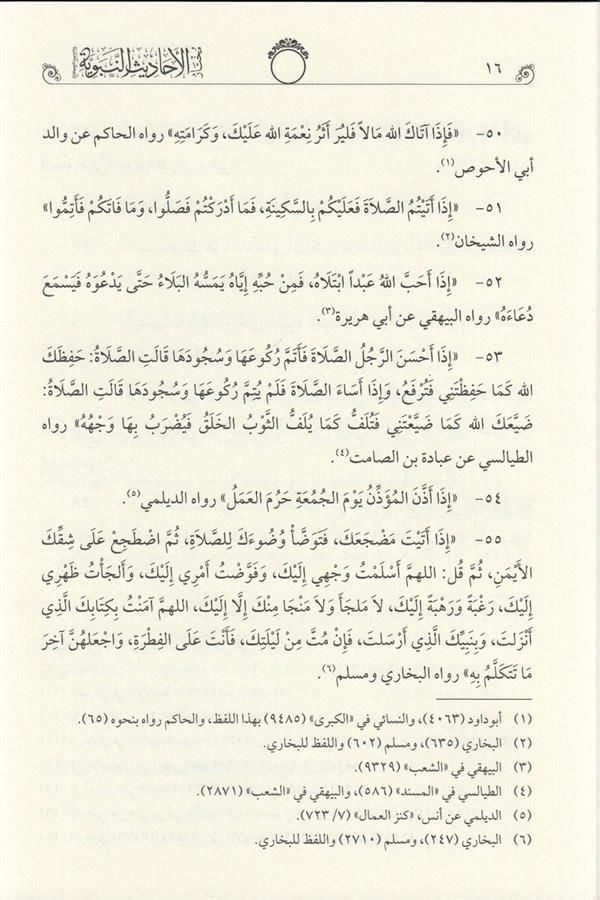 ١٦
مختار الأحاديث النبوية
٥٠- «فَإِذَا آتَاكَ الله مَالاً فَليُرَ أَثَرُ نِعْمَةِ الله عَلَيْكَ، وَكَرَامَتِهِ» رواه الحاكم عن والد
أبي الأحوص(١).
٥١- «إِذَا أَتَيْتُمُ الصَّلاَةَ فَعَلَيْكُمْ بِالسَّكِينَةِ، فَمَا أَدْرَكْتُمْ فَصَلُّوا، وَمَا فَاتَكُمْ فَأَتِمُّوا»
رواه الشيخان(٢).
٥٢- «إِذَا أَحَبَّ اللهُ عَبْداً ابْتَلَاهُ، فَمِنْ حُبِّهِ إِيَّاهُ يَمَسُّهُ البَلَاءُ حَتَّى يَدْعُوَهُ فَيَسْمَعَ
دُعَاءَهُ» رواه البيهقي عن أبي هريرة(٣).
٥٣- «إِذَا أَحْسَنَ الرَّجُلُ الصَّلَاةَ فَأَتَمَّ رُكُوعَهَا وَسُجُودَهَا قَالَتِ الصَّلَاةُ: حَفِظَكَ
الله كَمَا حَفِظْتَنِي فَتُرْفَعُ، وَإِذَا أَسَاءَ الصَّلَاةَ فَلَمْ يُتِمَّ رُكُوعَهَا وَسُجُودَهَا قَالَتِ الصَّلَاةُ:
ضَيَّعَكَ الله كَمَا ضَيَّعْتَنِي فَتُلَفُّ كَمَا يُلَفُّ الثَّوْبُ الخَلَقُ فَيُضْرَبُ بِهَا وَجْهُهُ» رواه
الطيالسي عن عبادة بن الصامت(٤).
٥٤- «إِذَا أَذَّنَ المُؤَذِّنُ يَوْمَ الجُمُعَةِ حَرُمَ العَمَلُ» رواه الديلمي(٥).
٥٥- «إِذَا أَتَيْتَ مَضْجَعَكَ، فَتَوَضَّأْ وُضُوءَكَ لِلصَّلاَةِ، ثُمَّ اضْطَجِعْ عَلَى شِقِّكَ
الأَيْمَنِ، ثُمَّ قُل: اللهمَّ أَسْلَمْتُ وَجْهِي إِلَيْكَ، وَفَوَّضْتُ أَمْرِي إِلَيْكَ، وَأَلجَأْتُ ظَهْرِي
إِلَيْكَ، رَغْبَةً وَرَهْبَةً إِلَيْكَ، لاَ مَلجَأَ وَلاَ مَنْجَا مِنْكَ إِلَّا إِلَيْكَ، اللهمَّ آمَنْتُ بِكِتَابِكَ الَّذِي
أَنْزَلتَ، وَبِنَبِيِّكَ الَّذِي أَرْسَلتَ، فَإِنْ مُتَّ مِنْ لَيْلَتِكَ، فَأَنْتَ عَلَى الفِطْرَةِ، وَاجْعَلهُنَّ آخِرَ
مَا تَتَكَلَّمُ بِهِ» رواه البخاري ومسلم(٦).
(١) أبوداود (٤٠٦٣)، والنسائي في «الكبرى» (٩٤٨٥) بهذا اللفظ، والحاكم رواه بنحوه (٦٥).
(٢) البخاري (٦٣٥)، ومسلم (٦٠٢) واللفظ للبخاري.
(٣) البيهقي في «الشعب» (٩٣٢٩).
(٤) الطيالسي في «المسند» (٥٨٦)، والبيهقي في «الشعب» (٢٨٧١).
(٥) الديلمي عن أنس، «كنز العمال» (٧/ ٧٢٣).
(٦) البخاري (٢٤٧)، ومسلم (٢٧١٠) واللفظ للبخاري.